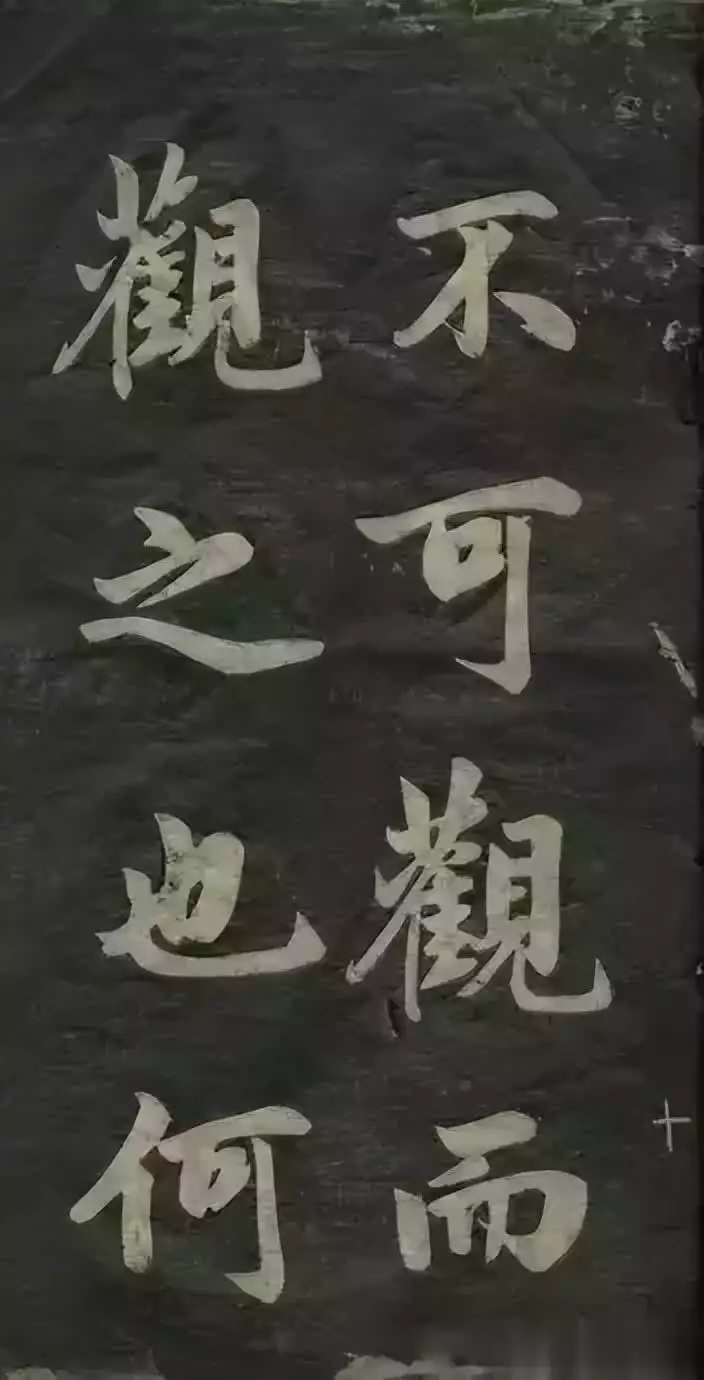 不可觀而
觀之也何